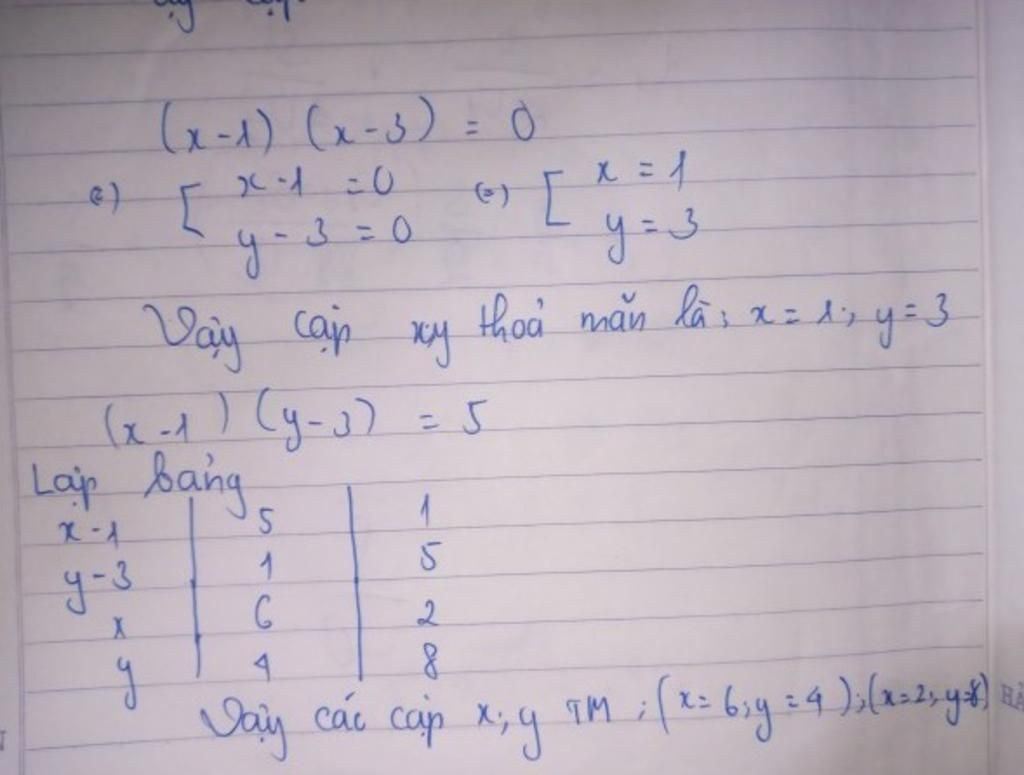 (x-1) (x-3) = 0
(=) [ x-1 =0 (=) [ x = 1
y-3 =0 y = 3
Vậy cặp xy thoả mãn là; x=1; y=3
(x-1) (y-3) = 5
Lập bảng
x-1 | 5 | 1
y-3 | 1 | 5
x | 6 | 2
y | 4 | 8
Vậy các cặp x; y TM ; (x=6; y=4); (x=2; y=8)